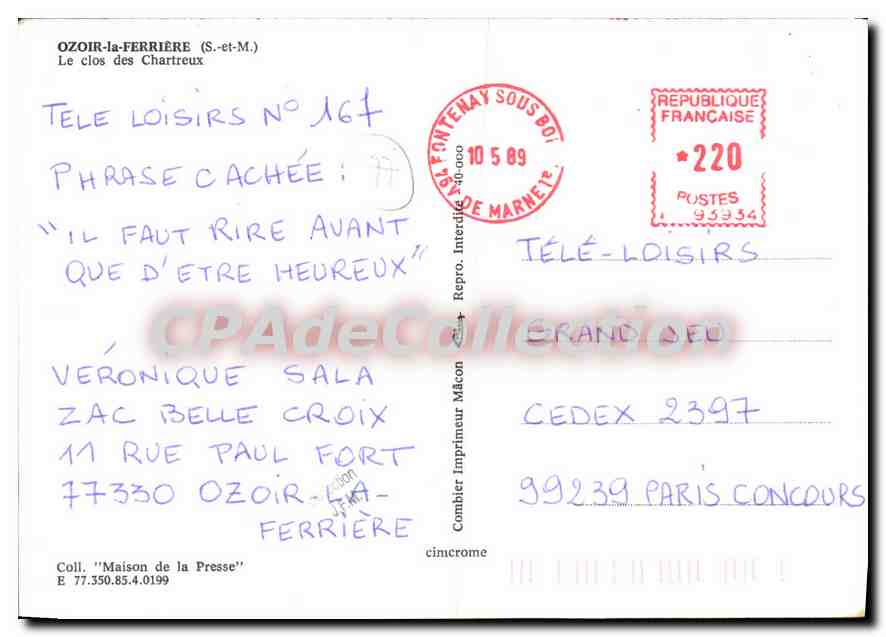 OZOIR-la-FERRIÈRE (S.-et-M.)
Le clos des Chartreux
TELE LOISIRS N° 167
PHRASE CACHÉE :
77
"IL FAUT RIRE AVANT
QUE D'ETRE HEUREUX"
VÉRONIQUE SALA
ZAC BELLE CROIX
11 RUE PAUL FORT
77330 OZOIR-LA-
FERRIÈRE
Coll. "Maison de la Presse"
E 77.350.85.4.0199
cimcrome
Combier Imprimeur Mâcon
Repro. Interdite 40-000
94 FONTENAY SOUS BOI
10 5 89
DE MARNE
REPUBLIQUE
FRANÇAISE
*220
POSTES
93934
TÉLÉ-LOISIRS
GRAND JEU
CEDEX 2397
99239 PARIS CONCOURS
CPAdeCollection